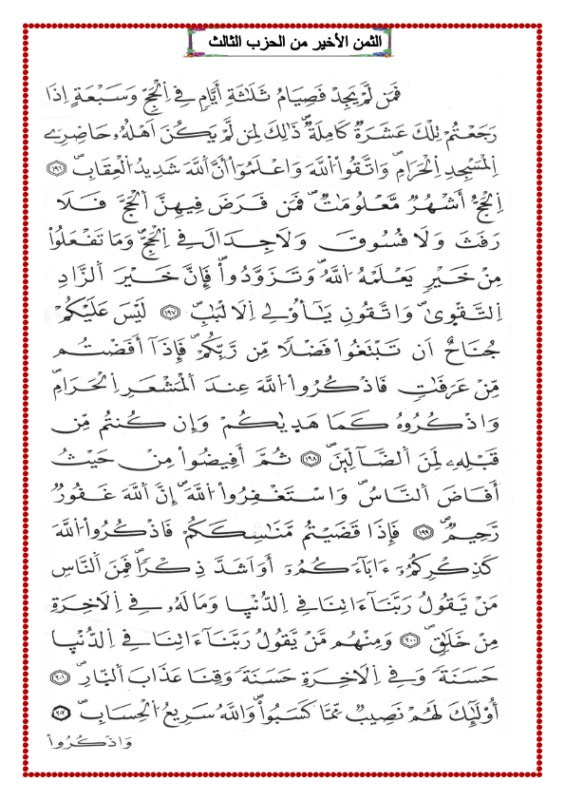 الثمن الأخير من الحزب الثالث
فَمَن لَّمْ يَجِدْ فَصِيَامُ ثَلَٰثَةِ أَيَّامٍ فِے اِلْحَجِّ وَسَبْعَةٍ اِذَا
رَجَعْتُمْ تِلْكَ عَشَرَةٌ كَامِلَةٌ ذَٰلِكَ لِمَن لَّمْ يَكُنَ اَهْلُهُۥ حَاضِرِے
اِلْمَسْجِدِ اِلْحَرَامِ وَاتَّقُواْ اللَّهَ وَاعْلَمُوٓاْ أَنَّ اَللَّهَ شَدِيدُ اُلْعِقَابِ ١٩٦
اِلْحَجُّ أَشْهُرٌ مَّعْلُومَٰتٌ فَمَن فَرَضَ فِيهِنَّ اَلْحَجَّ فَلَا
رَفَثَ وَلَا فُسُوقَ وَلَا جِدَالَ فِے اِلْحَجِّ وَمَا تَفْعَلُواْ
مِنْ خَيْرٍ يَعْلَمْهُ اُللَّهُ وَتَزَوَّدُواْ فَإِنَّ خَيْرَ اَلزَّادِ
اِلتَّقْوٰىۖ وَاتَّقُونِ يَٰٓأُوْلِے اِلَالْبَٰبِ ١٩٧ لَيْسَ عَلَيْكُمْ
جُنَاحٌ اَن تَبْتَغُواْ فَضْلًا مِّن رَّبِّكُمْ فَإِذَآ أَفَضْتُم
مِّنْ عَرَفَٰتٍ فَاذْكُرُواْ اُللَّهَ عِندَ اَلْمَشْعَرِ اِلْحَرَامِ
وَاذْكُرُوهُ كَمَا هَدٰىكُمْ وَإِن كُنتُم مِّن
قَبْلِهِۦ لَمِنَ اَلضَّآلِّينَ ١٩٨ ثُمَّ أَفِيضُواْ مِنْ حَيْثُ
أَفَاضَ اَلنَّاسُ وَاسْتَغْفِرُواْ اُللَّهَ إِنَّ اَللَّهَ غَفُورٌ
رَّحِيمٌ ١٩٩ فَإِذَا قَضَيْتُم مَّنَٰسِكَكُمْ فَاذْكُرُواْ اُللَّهَ
كَذِكْرِكُمُۥٓ ءَابَآءَكُمُۥٓ أَوَ اَشَدَّ ذِكْرًا فَمِنَ اَلنَّاسِ
مَنْ يَّقُولُ رَبَّنَآ ءَاتِنَا فِے اِلدُّنْيَا وَمَا لَهُۥ فِے اِلَاخِرَةِ
مِنْ خَلَٰقٍ ٢٠٠ وَمِنْهُم مَّنْ يَّقُولُ رَبَّنَآ ءَاتِنَا فِے اِلدُّنْيَا
حَسَنَةً وَفِے اِلَاخِرَةِ حَسَنَةً وَقِنَا عَذَابَ اَلنَّارِ ٢٠١
أُوْلَٰٓئِكَ لَهُمْ نَصِيبٌ مِّمَّا كَسَبُواْ وَاللَّهُ سَرِيعُ اُلْحِسَابِ ٢٠٢
وَاذْكُرُواْ